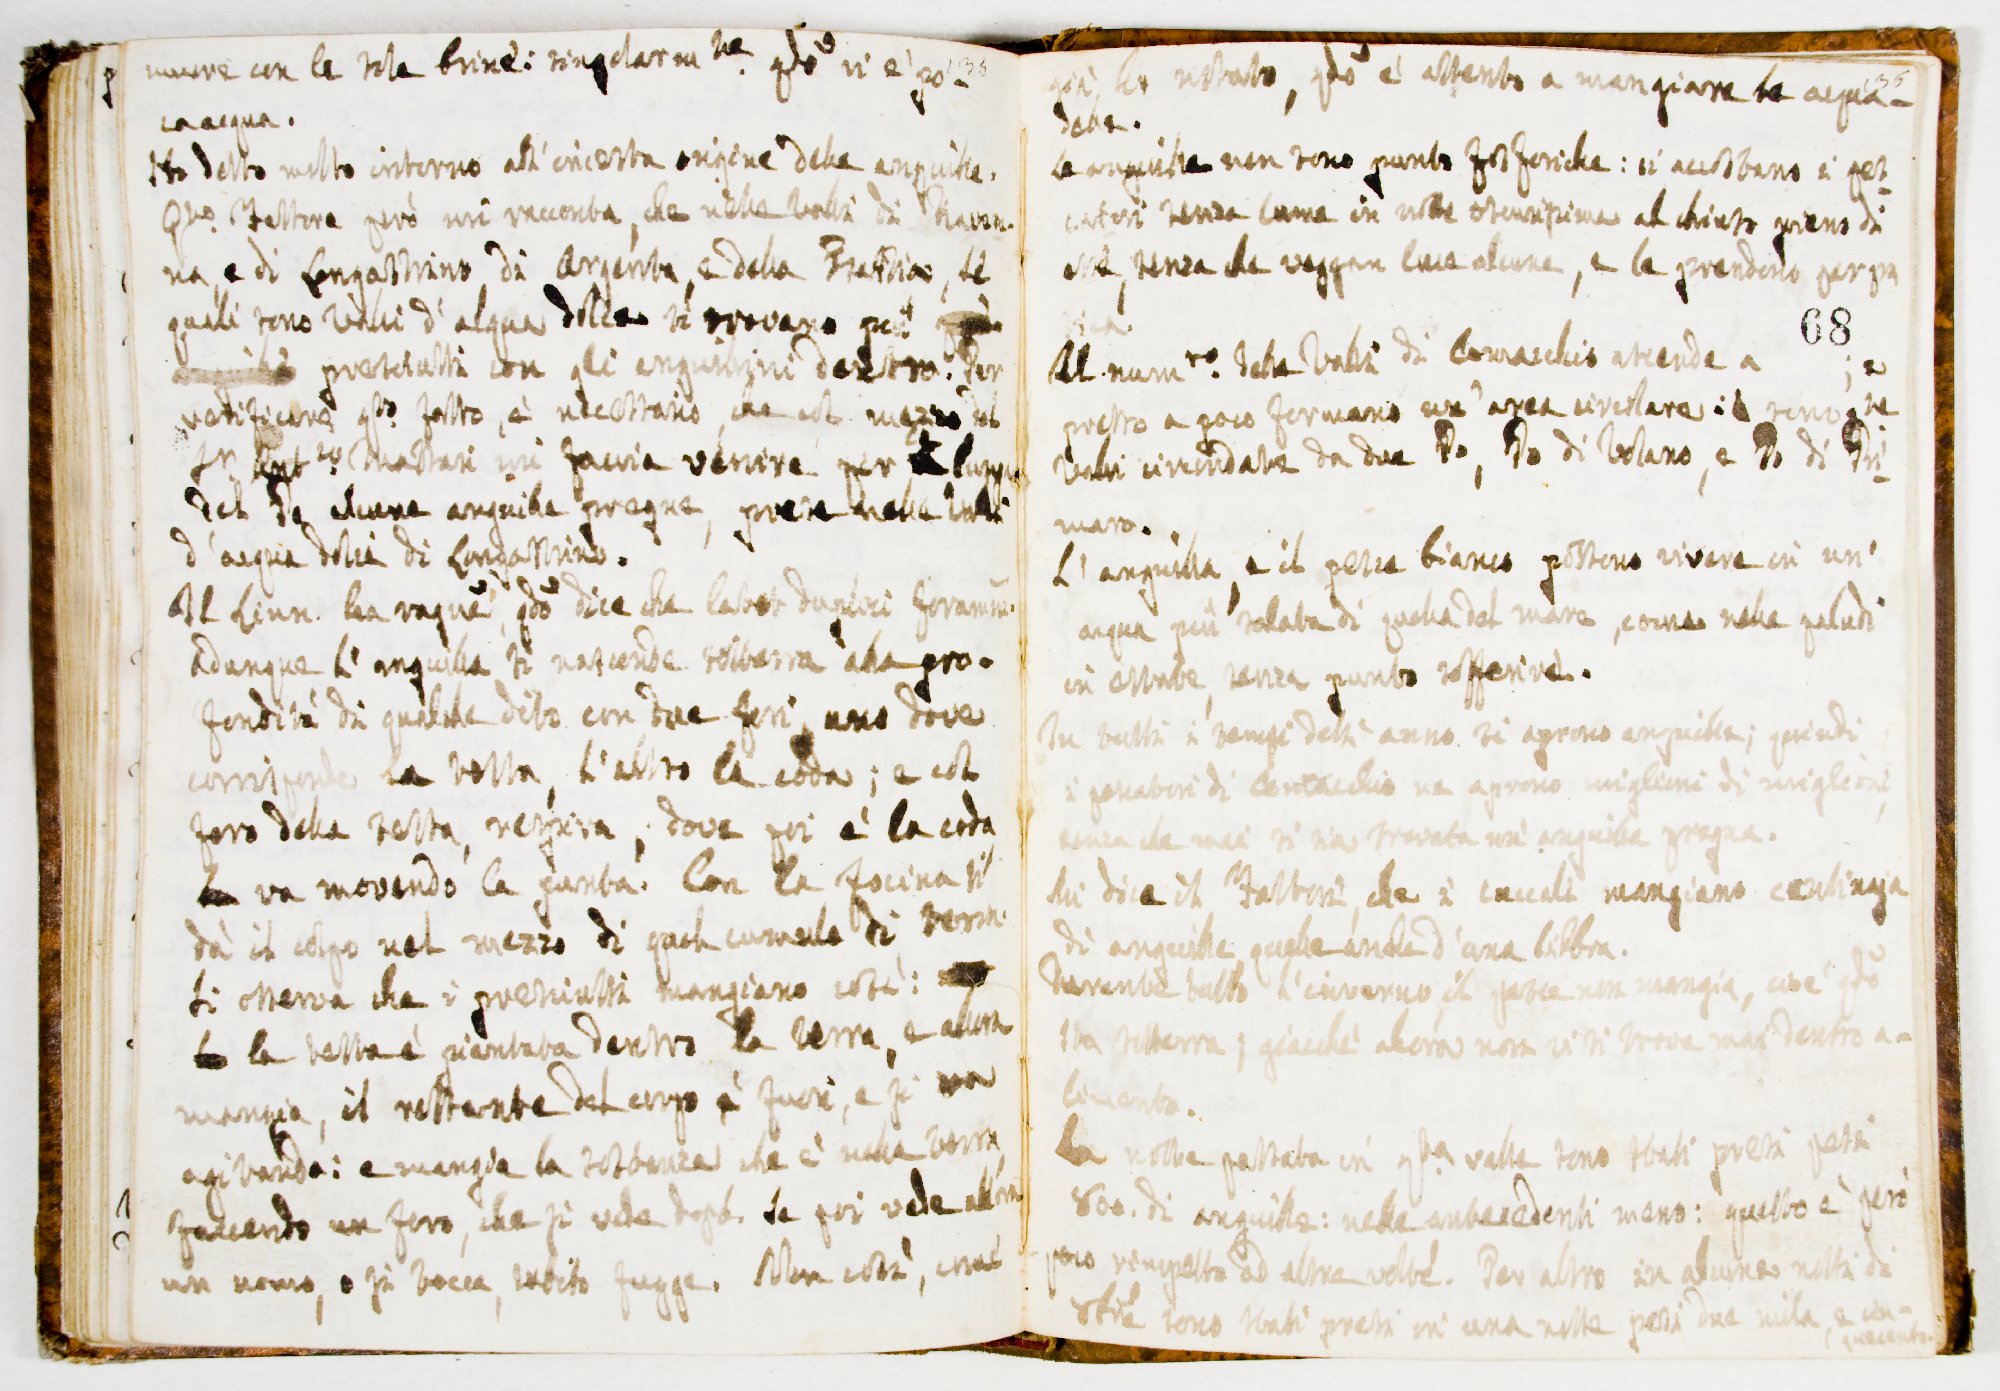 muore con le sole brine: singolarm.te qdo vi è po- 35
ca acqua.
Ho detto molto intorno all'incerta origine delle anguille.
Qto. Fattore però mi racconta, che nelle Valli di Raven-
na, e di Longastrino, di Argenta, e della, le
quali sono Valli d'acqua dolce si trovano più
presciutti con gli anguillini dentro. Per
verificare qto. fatto, è necessario, che col mezzo del
Mattari mi faccia venire per lungo
del Po alcune anguille pregne, prese nelle Valli
d'acqua dolci di Longastrino.
Il Linn. ha ragne, qdo dice che latet duplici foramine.
Adunque l'anguilla si nasconde sotterra alla pro-
fondità di qualche dito con due fori, uno dove
corrisponde la testa, l'altro la coda; e col
foro della testa, respira; dove poi è la coda
va movendo la punta. Con la focina si
dà il colpo nel mezzo di quel cumulo di terra.
Si osserva che i presciutti mangiano così:
la testa è piantata dentro la terra, e allora
mangia, il restante del corpo è fuori, e si va
agitando: e mangia la sostanza che è nella terra
facendo un foro, che si vede dopo. Se poi vede allora
un uomo, o si tocca, subito fugge. Non così,
già ho notato, qdo è attento a mangiare le acqua- 36
delle.
Le anguille non sono punto fosforiche: si accostano i pes-
catori senza lume in notte oscurissima al chiuso pieno di
esse, senza che veggan luce alcuna, e le prendono per pra
tica.
68
Il num.ro delle Valli di Comacchio ascende a ; e
presso a poco formano un'area circolare: sono
Valli circondate da due Po, Po di Volano, e Po di Pri-
maro.
L'anguilla, e il pesce bianco possono vivere in un'
acqua più salata di quella del mare, come nelle paludi
in estate, senza punto soffrire.
In tutti i tempi dell'anno si aprono anguille; quindi
i pescatori di Comacchio ne aprono miglioni di miglioni,
senza che mai si sia trovata un'anguilla pregna.
Mi dice il Fattori, che i cuccali mangiano centinaja
di anguille, quelle anche d'una libbra.
Durante tutto l'inverno, il pesce non mangia, cioè qdo
sta sotterra; giacchè allora non vi si trova mai dentro a-
limento.
La notte passata in qta valle sono stati presi pesi
800. di anguille: nelle antecedenti meno: questo è però
poco rimpetto ad altre volte. Per altro in alcune notti di
sono stati presi in una notte pesi due mila, e cin-
quecento.